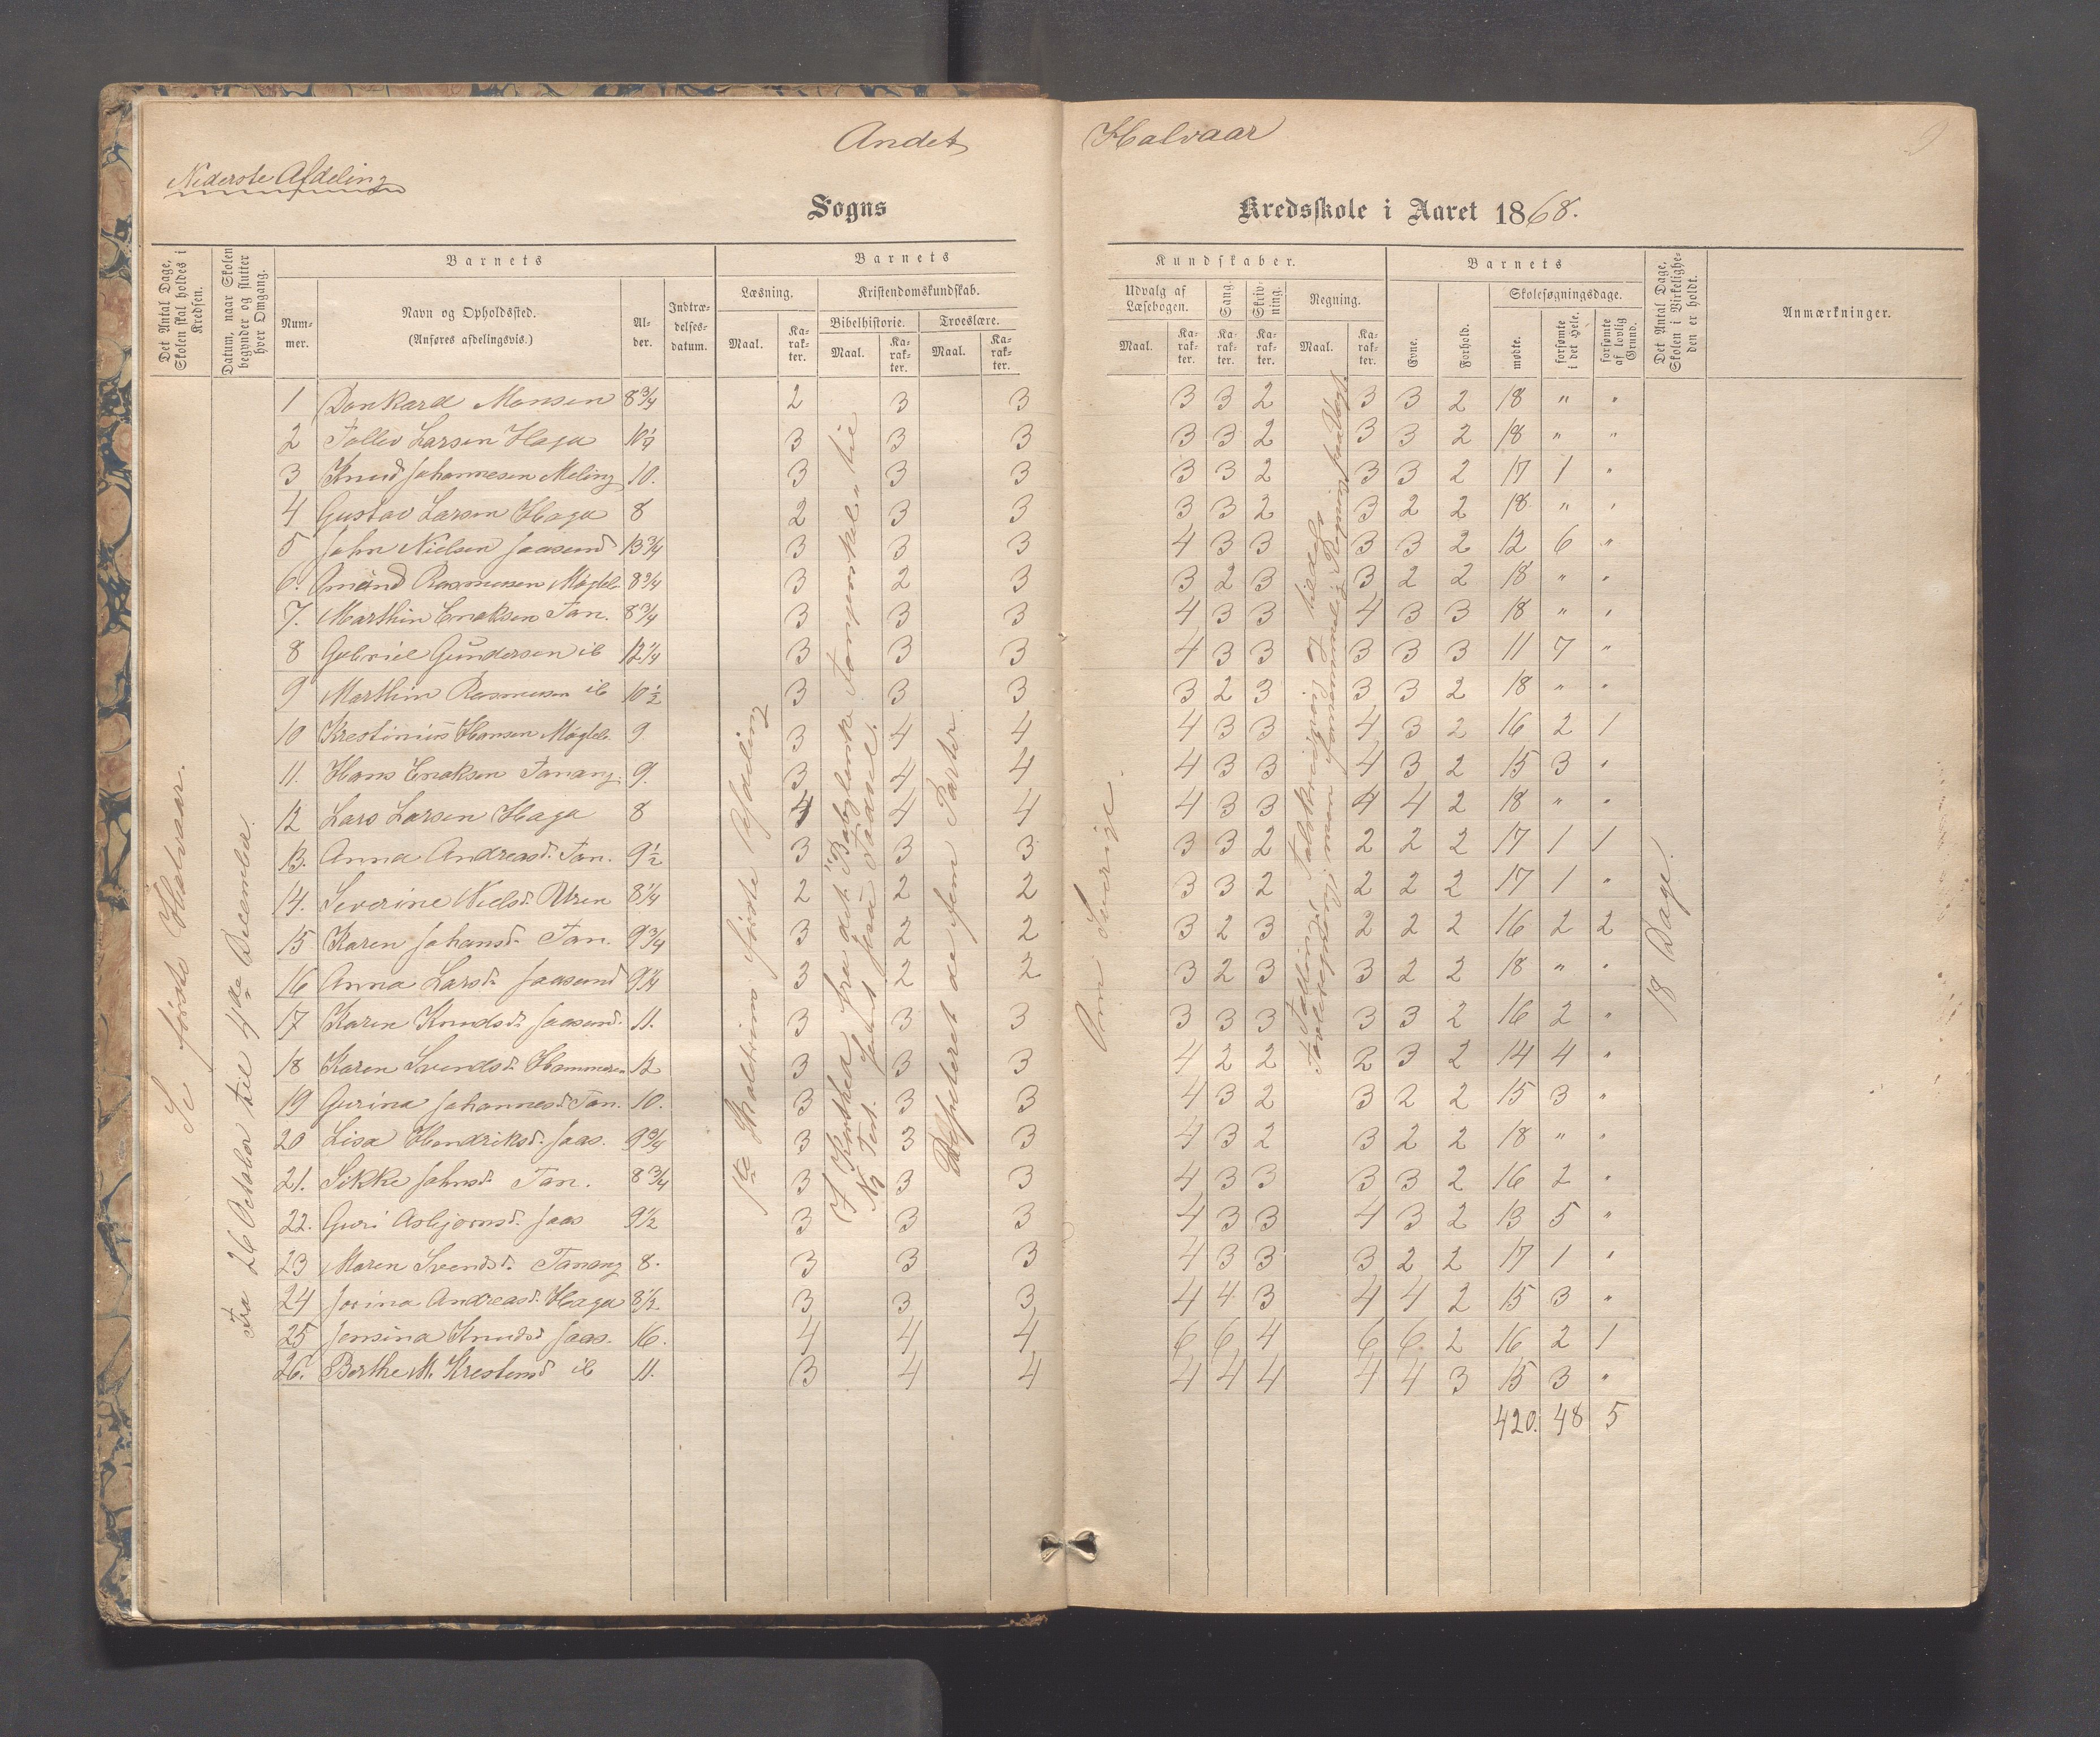 Andet Halvaar
Nederste Afdeling
Sogns Kredsskole i Aaret 1868.
Det Antal Dage, Skolen skal holdes i Kredsen.
Datum, naar Skolen begynder og slutter hver Omgang.
Barnets
Num-mer.
Navn og Opholdssted.
(Anføres afdelingsvis.)
Al-der.
Indtræ-delses-datum.
Barnets Kundskaber.
Læsning.
Maal.
Ka-rak-ter.
Kristendomskundskab.
Bibelhistorie.
Maal.
Ka-rak-ter.
Troeslære.
Maal.
Ka-rak-ter.
Udvalg af Læsebogen.
Maal.
Ka-rak-ter.
Sang.
Ka-rak-ter.
Skriv-ning.
Ka-rak-ter.
Regning.
Maal.
Ka-rak-ter.
Barnets
Evne.
Forhold.
Skolesøgningsdage.
mødte.
forsømte i det Hele.
forsømte af lovlig Grund.
Det Antal Dage, Skolen i Virkelighe-den er holdt.
Anmærkninger.
Se første Halvaar.
Fra 26 October til 4de December.
første Afdeling
Repeteret de fem Parter
Om Sverige.
18 Dage.
1 Dankard Monsen 8 3/4 2 3 3 3 3 2 3 3 2 18 " "
2 Tollev Larsen Haga 10 1/4 3 3 3 3 3 2 3 3 2 18 " "
3 Knud Johannesen Meling 10. 3 3 3 3 3 2 3 3 2 17 1 "
4 Gustav Larsen Haga 8 2 3 3 3 3 2 3 2 2 18 " "
5 John Nielsen Jaasund 13 3/4 3 3 3 4 3 3 3 3 2 12 6 "
6. Rasmussen 8 3/4 3 2 3 3 2 3 3 2 2 18 " "
7. Marthin Eriksen Tan. 8 3/4 3 3 3 4 3 3 4 3 3 18 " "
8 Gabriel Gundersen ib 12 1/4 3 3 3 4 3 3 3 3 3 11 7 "
9 Marthin Rasmussen ib 10 1/2 3 3 3 3 2 3 3 3 2 18 " "
10 Krestinius Hansen 9 3 4 4 4 3 3 4 3 2 16 2 1
11. Hans Eriksen Tanang. 9. 3 4 4 4 3 3 4 3 2 15 3 "
12 Lars Larsen Haga 8 4 4 4 4 3 3 4 4 2 18 " "
13. Anna Andreasd. Tan. 9 1/2 3 3 3 3 3 2 2 2 2 17 1 1
14. Severine Nielsd. 8 1/4 2 2 2 3 3 2 2 2 2 17 1 "
15 Karen Johansd. Tan. 9 3/4 3 2 2 3 2 3 2 2 2 16 2 2
16 Anna Larsd. Jaasund 9 1/4 3 2 2 3 2 3 3 2 2 18 " "
17 Karen Knudsd. Jaasund. 11. 3 3 3 3 3 3 3 3 2 16 2 "
18 Karen Svendsd. Hammeren 12 3 3 3 4 2 2 2 3 2 14 4 "
19 Gurina Johannesd. Tan. 10. 3 3 3 4 3 2 3 2 2 15 3 "
20 Lisa Hendriksd. Jaas. 9 3/4 3 3 3 4 3 2 3 2 2 18 " "
21. Sikke Johnsd. Tan. 8 3/4 3 3 3 4 3 3 3 3 2 16 2 "
22. Guri Asbjørnsd. Jaas 9 1/2 3 3 3 4 3 3 4 3 2 13 5 "
23 Maren Svendsd. Tanang 8. 3 3 3 4 3 3 3 2 2 17 1 "
24 Jorina Andreasd. Haga 8 1/2 3 3 3 4 4 3 4 4 2 15 3 "
25 Jensina Knudsd Jaas. 16. 4 4 4 6 6 4 6 6 2 16 2 1
26. Berthe M. Krestensd ib 11. 3 4 4 4 4 4 4 4 3 15 3 "
420. 48 5